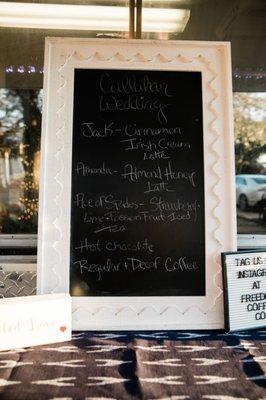 Callahan
Wedding
Jack - Cinnamon
Irish Cream
Latte
Amanda - Almond Honey
Latte
Ace of Spades - Strawberry
Lime + Passion Fruit Iced
Tea
Hot Chocolate
Regular + Decaf Coffee
TAG US
INSTAGR
AT
FREEDO
COFF
CO
led Love